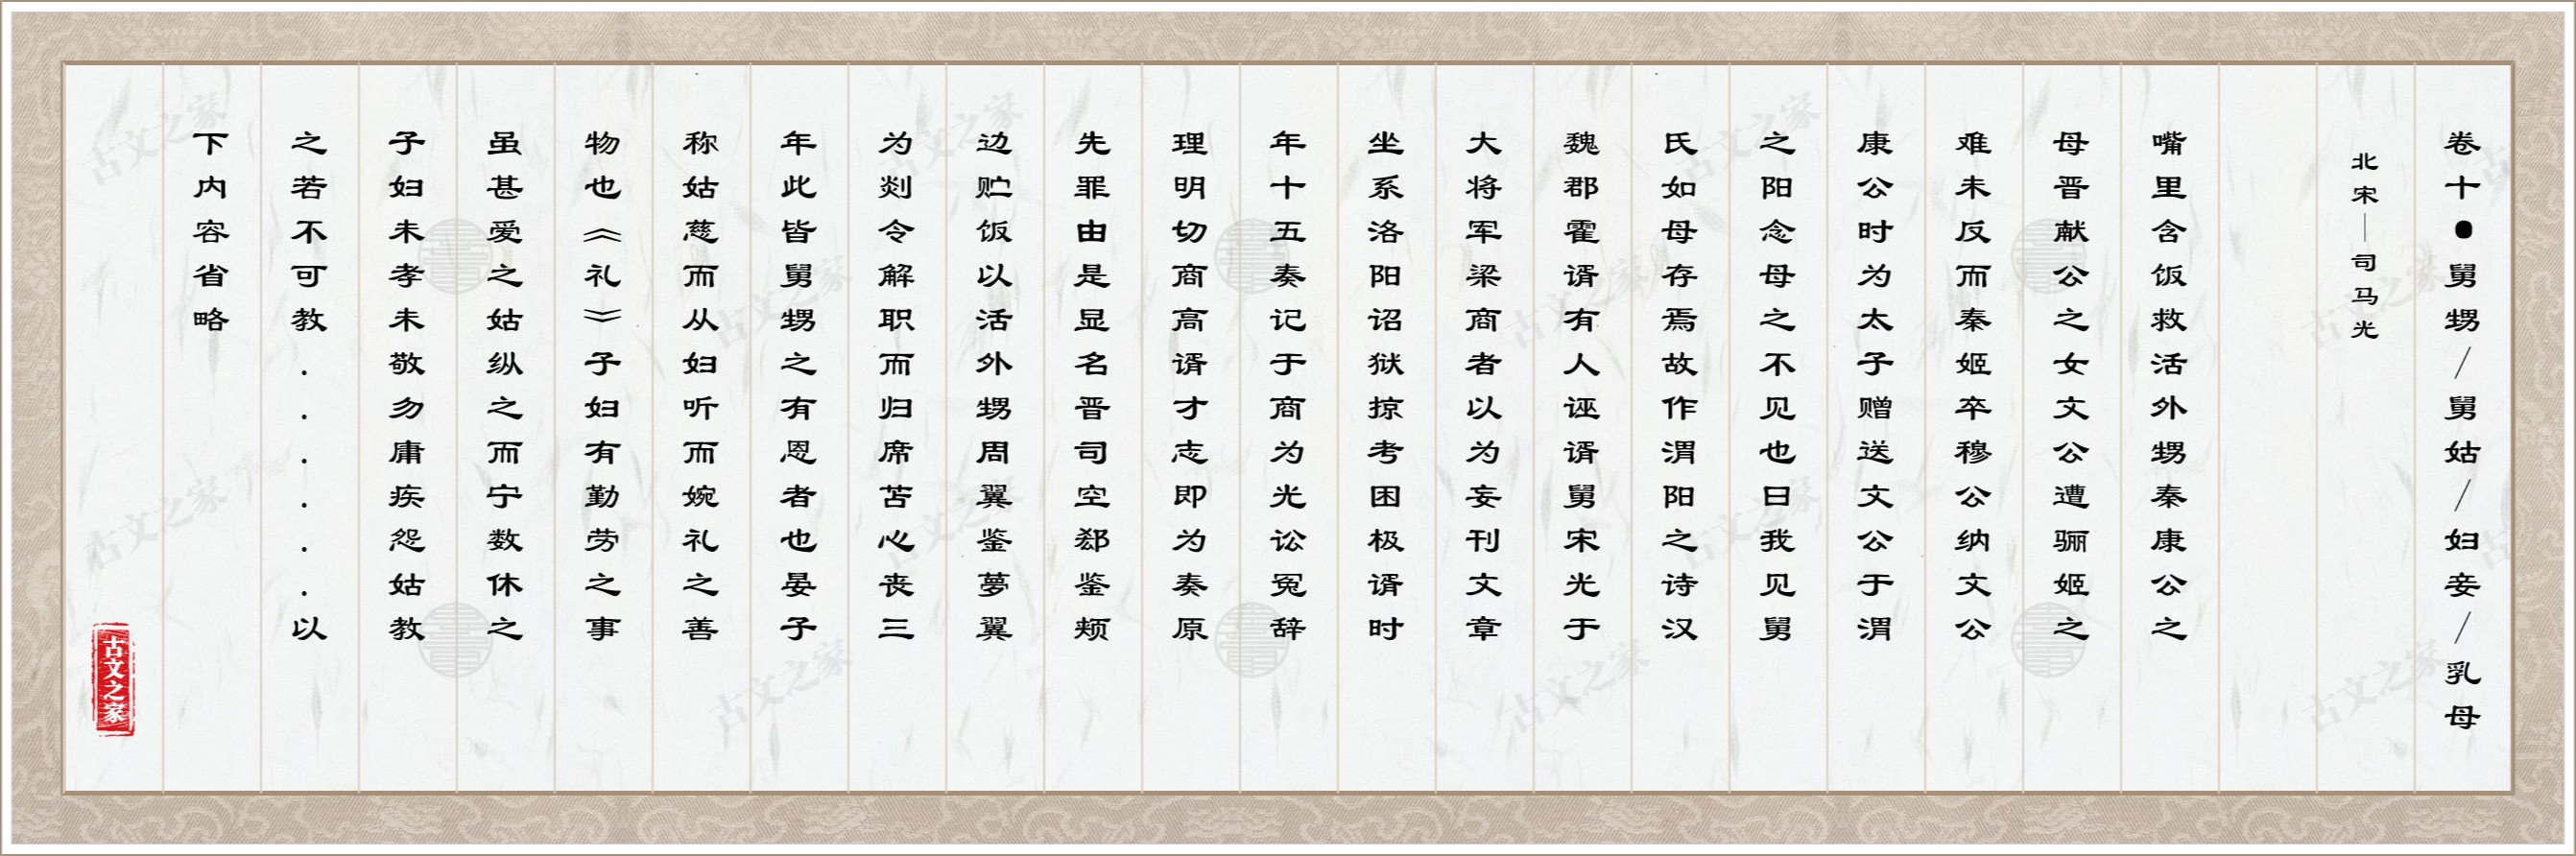 卷十●舅甥/舅姑/妇妾/乳母
北宋—司马光
嘴里含饭救活外甥秦康公之
母晋献公之女文公遭骊姬之
难未反而秦姬卒穆公纳文公
康公时为太子赠送文公于渭
之阳念母之不见也曰我见舅
氏如母存焉故作渭阳之诗汉
魏郡霍谞有人诬谞舅宋光于
大将军梁商者以为妄刊文章
坐系洛阳诏狱掠考困极谞时
年十五奏记于商为光讼冤辞
理明切商高谞才志即为奏原
先罪由是显名晋司空郄鉴颊
边贮饭以活外甥周翼鉴夢翼
为剡令解职而归席苫心丧三
年此皆舅甥之有恩者也晏子
称姑慈而从妇听而婉礼之善
物也《礼》子妇有勤劳之事
虽甚爱之姑纵之而宁数休之
子妇未孝未敬勿庸疾怨姑教
之若不可教......以
下内容省略
古文之家